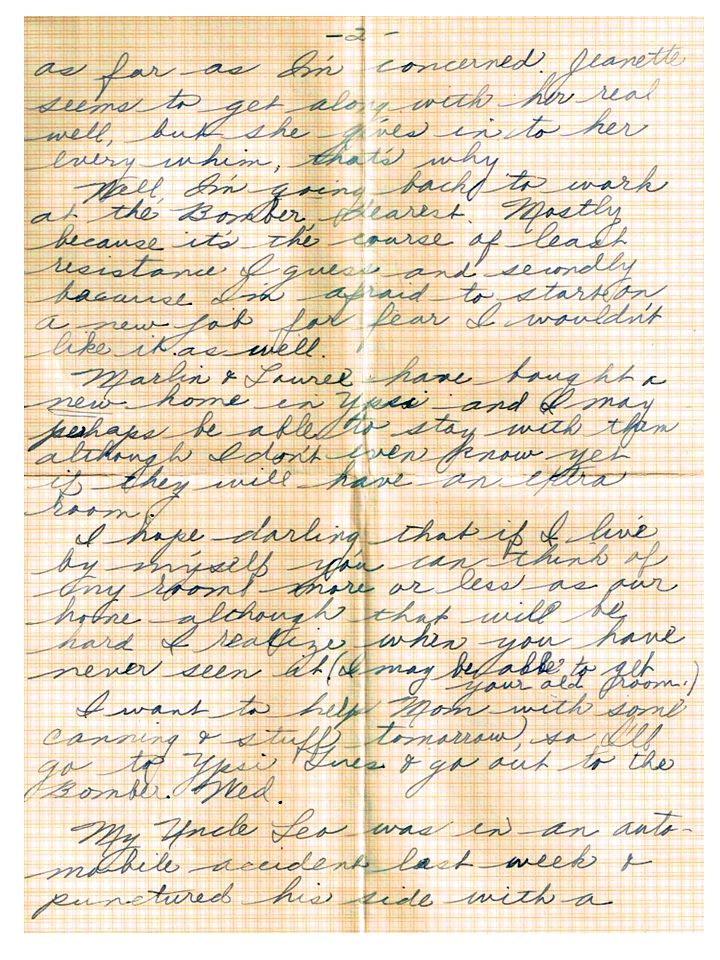 -2-
as far as I'm concerned. Jeanette
seems to get along with her real
well, but she gives in to her
every whim, that's why
Well, I'm going back to work
at the Bomber, dearest. Mostly
because it's the course of least
resistance I guess and secondly
bacause I'm afraid to start on
a new job for fear I wouldn't
like it as well.
Marlin & Lauree have bought a
new home in Ypsi and I may
perhaps be able to stay with them
although I don't even know yet
if they will have an extra
room.
I hope darling that if I live
by myself you can think of
my room more or less as our
home although that will be
hard I realize when you have
never seen it (I may be able to get
your old room.)
I want to help Mom with some
canning & stuff tomorrow, so I'll
go to Ypsi Tues & go out to the
Bomber. Wed.
My Uncle Leo was in an auto-
mobile accident last week &
punctured his side with a